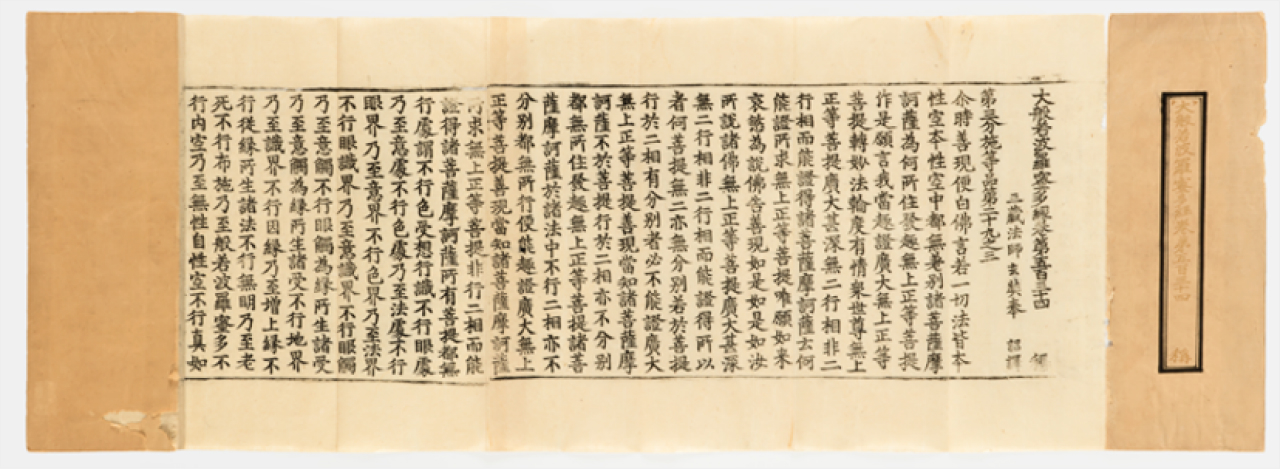 大般若波羅蜜多經卷第五百卅四
大般若波羅蜜多經卷第五百三十四
三藏法師玄奘奉 詔譯
第三分施等品第二十九之三
尒時善現便白佛言若一切法皆本
性空本性空中都無差別諸菩薩摩
訶薩為何所住發趣無上正等菩提
作是願言我當趣證廣大無上正等
菩提轉妙法輪度有情衆世尊無上
正等菩提廣大甚深無二行相非二
行相而能證得諸菩薩摩訶薩云何
能證所求無上正等菩提唯願如来
哀愍為說佛告善現如是如是如汝
所說諸佛無上正等菩提廣大甚深
無二行相非二行相而能證得所以
者何菩提無二亦無分別若於菩提
行於二相有分別者必不能證廣大
無上正等菩提善現當知諸菩薩摩
訶薩不於菩提行於二相亦不分別
都無所住發趣無上正等菩提諸菩
薩摩訶薩於諸法中不行二相亦不
分別都無所行便能趣證廣大無上
正等菩提善現當知諸菩薩摩訶薩
所求無上正等菩提非行二相而能
證得諸菩薩摩訶薩所有菩提都無
行處謂不行色受想行識不行眼處
乃至意處不行色處乃至法處不行
眼界乃至意界不行色界乃至法界
不行眼識界乃至意識界不行眼觸
乃至意觸不行眼觸為緣所生諸受
乃至意觸為緣所生諸受不行地界
乃至識界不行因緣乃至增上緣不
行從緣所生諸法不行無明乃至老
死不行布施乃至般若波羅蜜多不
行內空乃至無性自性空不行真如